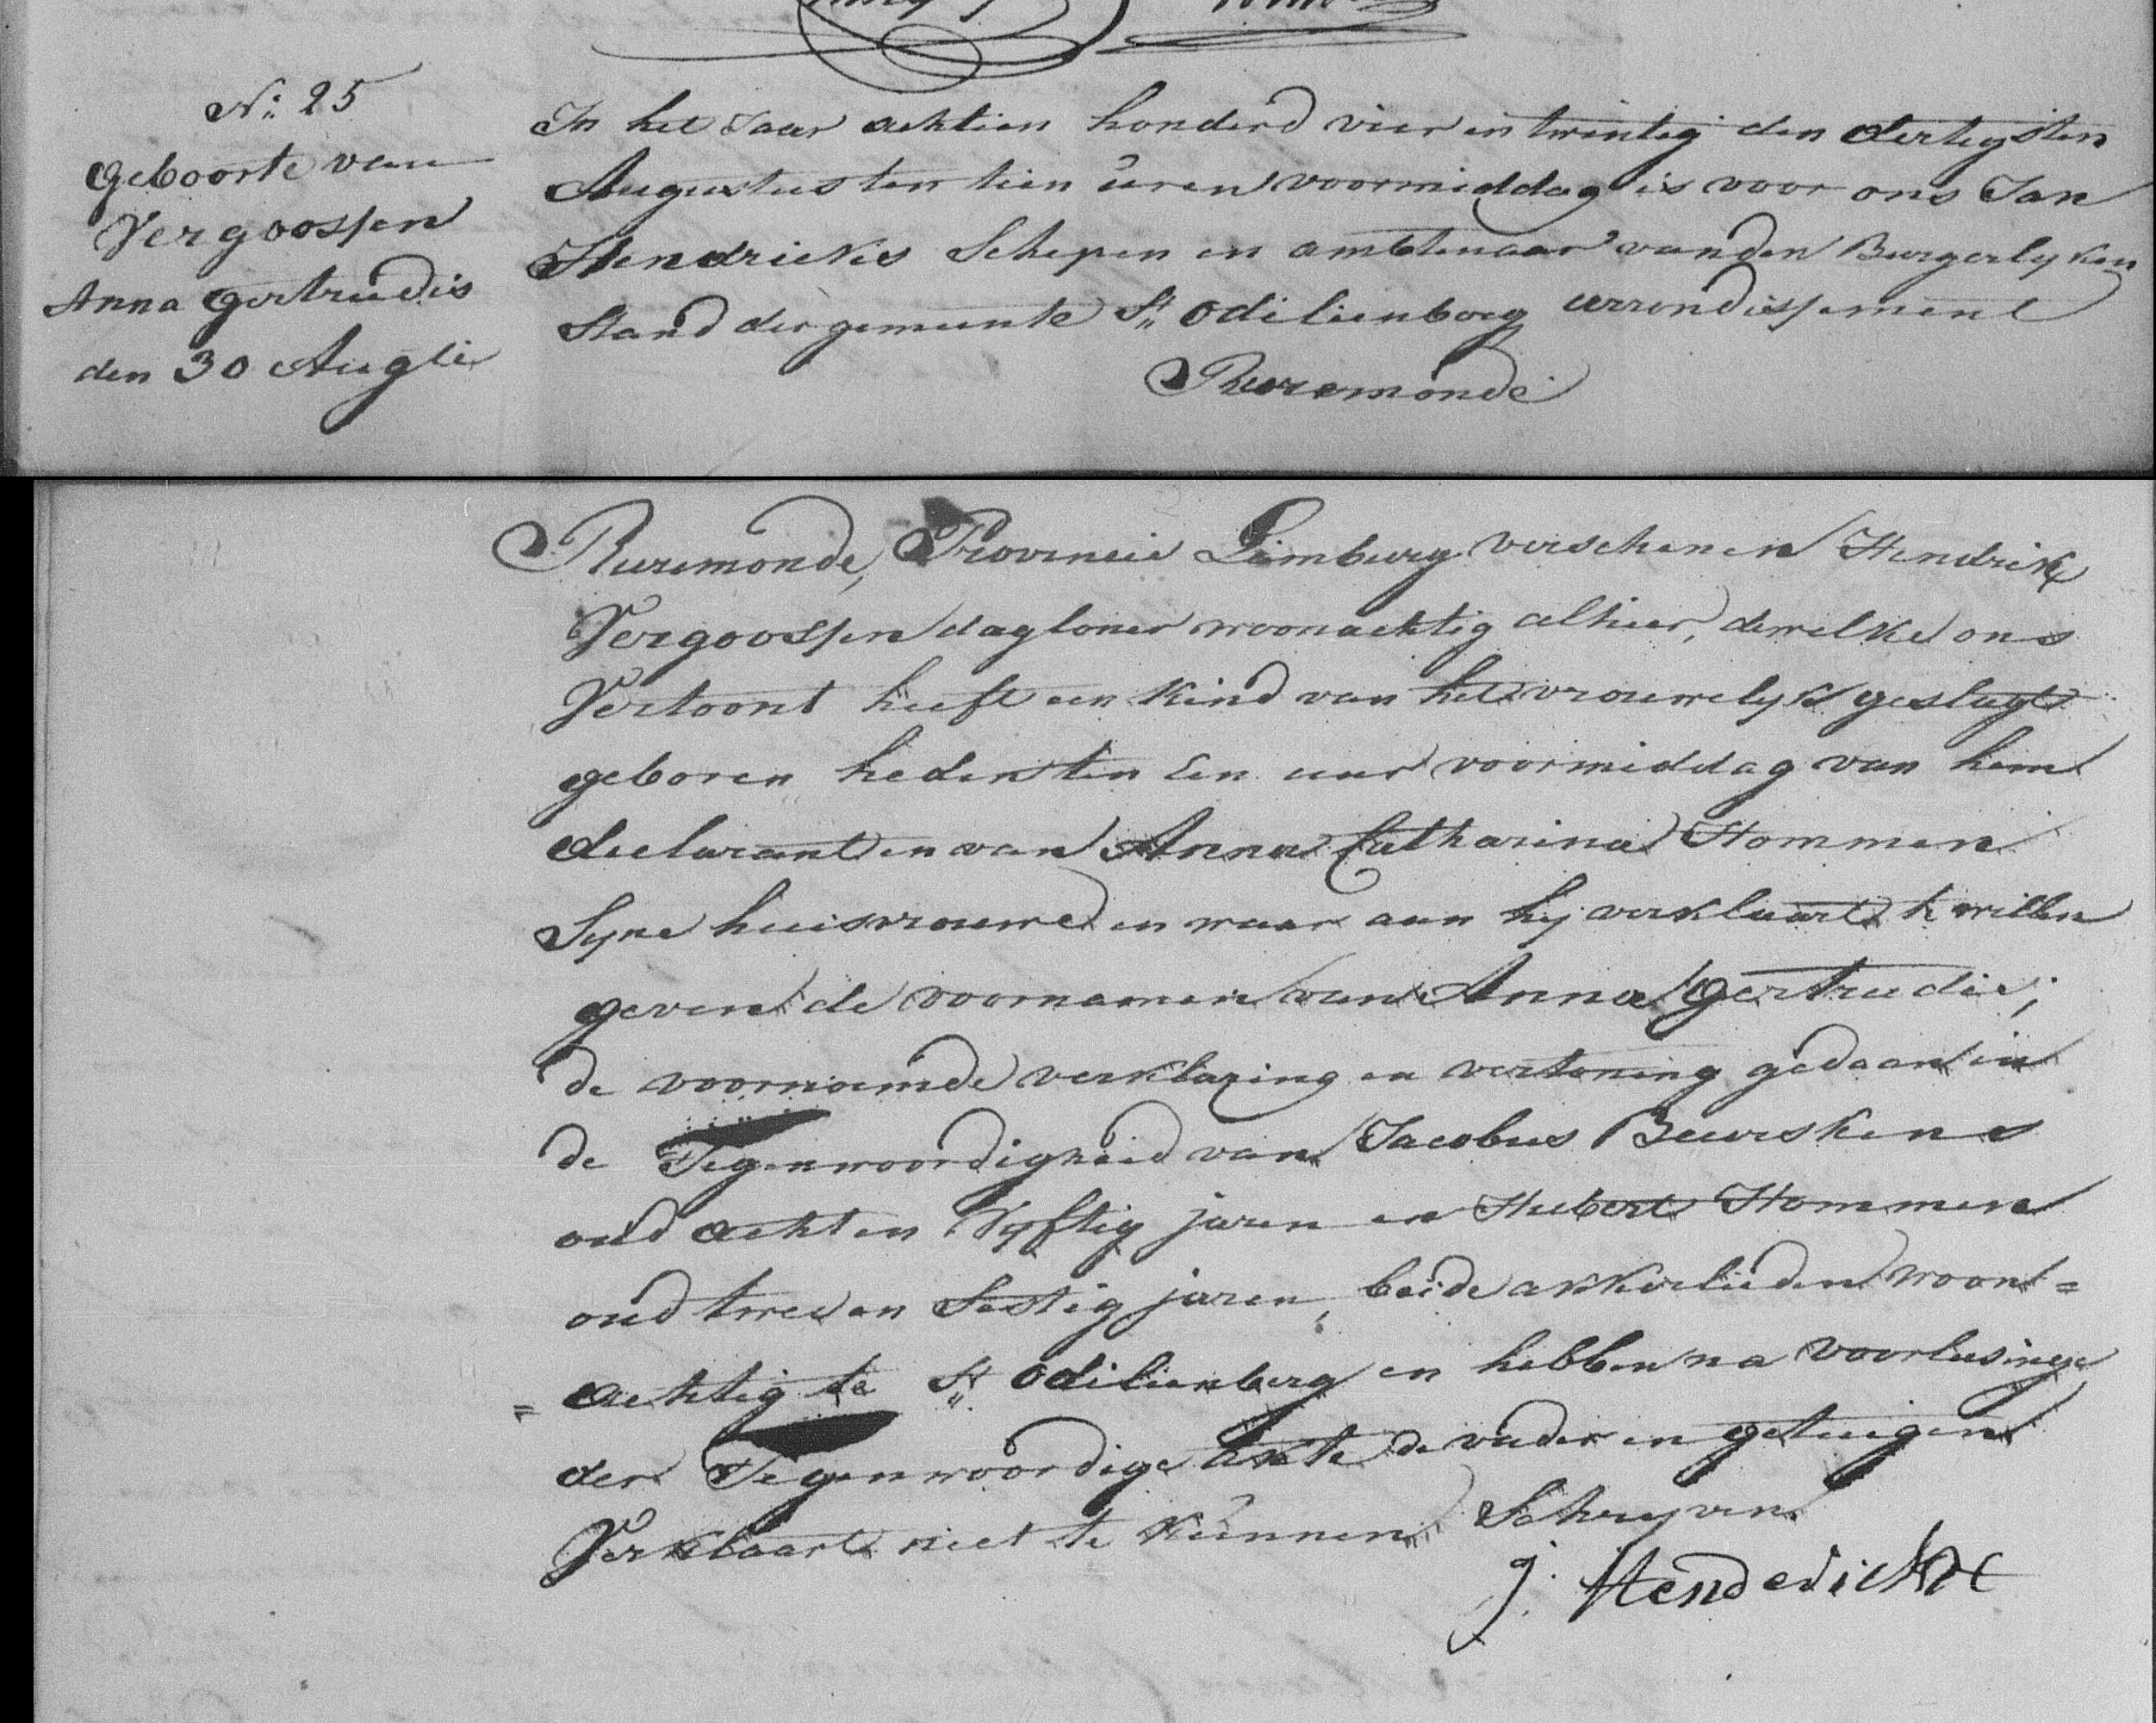 N.° 25
geboorte van
Vergoossen
Anna Gertrudis
den 30 Augti
In het Jaar achtien honderd vier en twintig den dertigsten
Augustus ten tien uren voormiddag is voor ons Jan
Hendrickx Schepen en ambtenaar van den Burgerlyken
Stand der gemeente St. Odilienborg arrondissement
Ruremonde
Ruremonde, Provincie Limburg verschenen Hendrik
Vergoossen dagloner woonachtig alhier, dewelke ons
Vertoont heeft een Kind van het vrouwelyk geslagt
geboren heden ten Een uur voormiddag van hem
declarant en van Anna Catharina Hommen
Syne huisvrouwe en waar aan hy verklaart te willen
geven de voornamen van Anna Gertrudis;
de voornoemde verklaring en vertoning gedaan in
de Tegenwoordigheid van Jacobus Beurskens
oud acht en Vyftig jaren en Hubert Hommen
oud twee en Sestig jaren, beide akkerlieden woon=
=achtig te St. Odilienberg en hebben na voorlesinge
der Tegenwoordige akte de vader en getuigen
Verklaart niet te kunnen Schryven
J. Henderickx